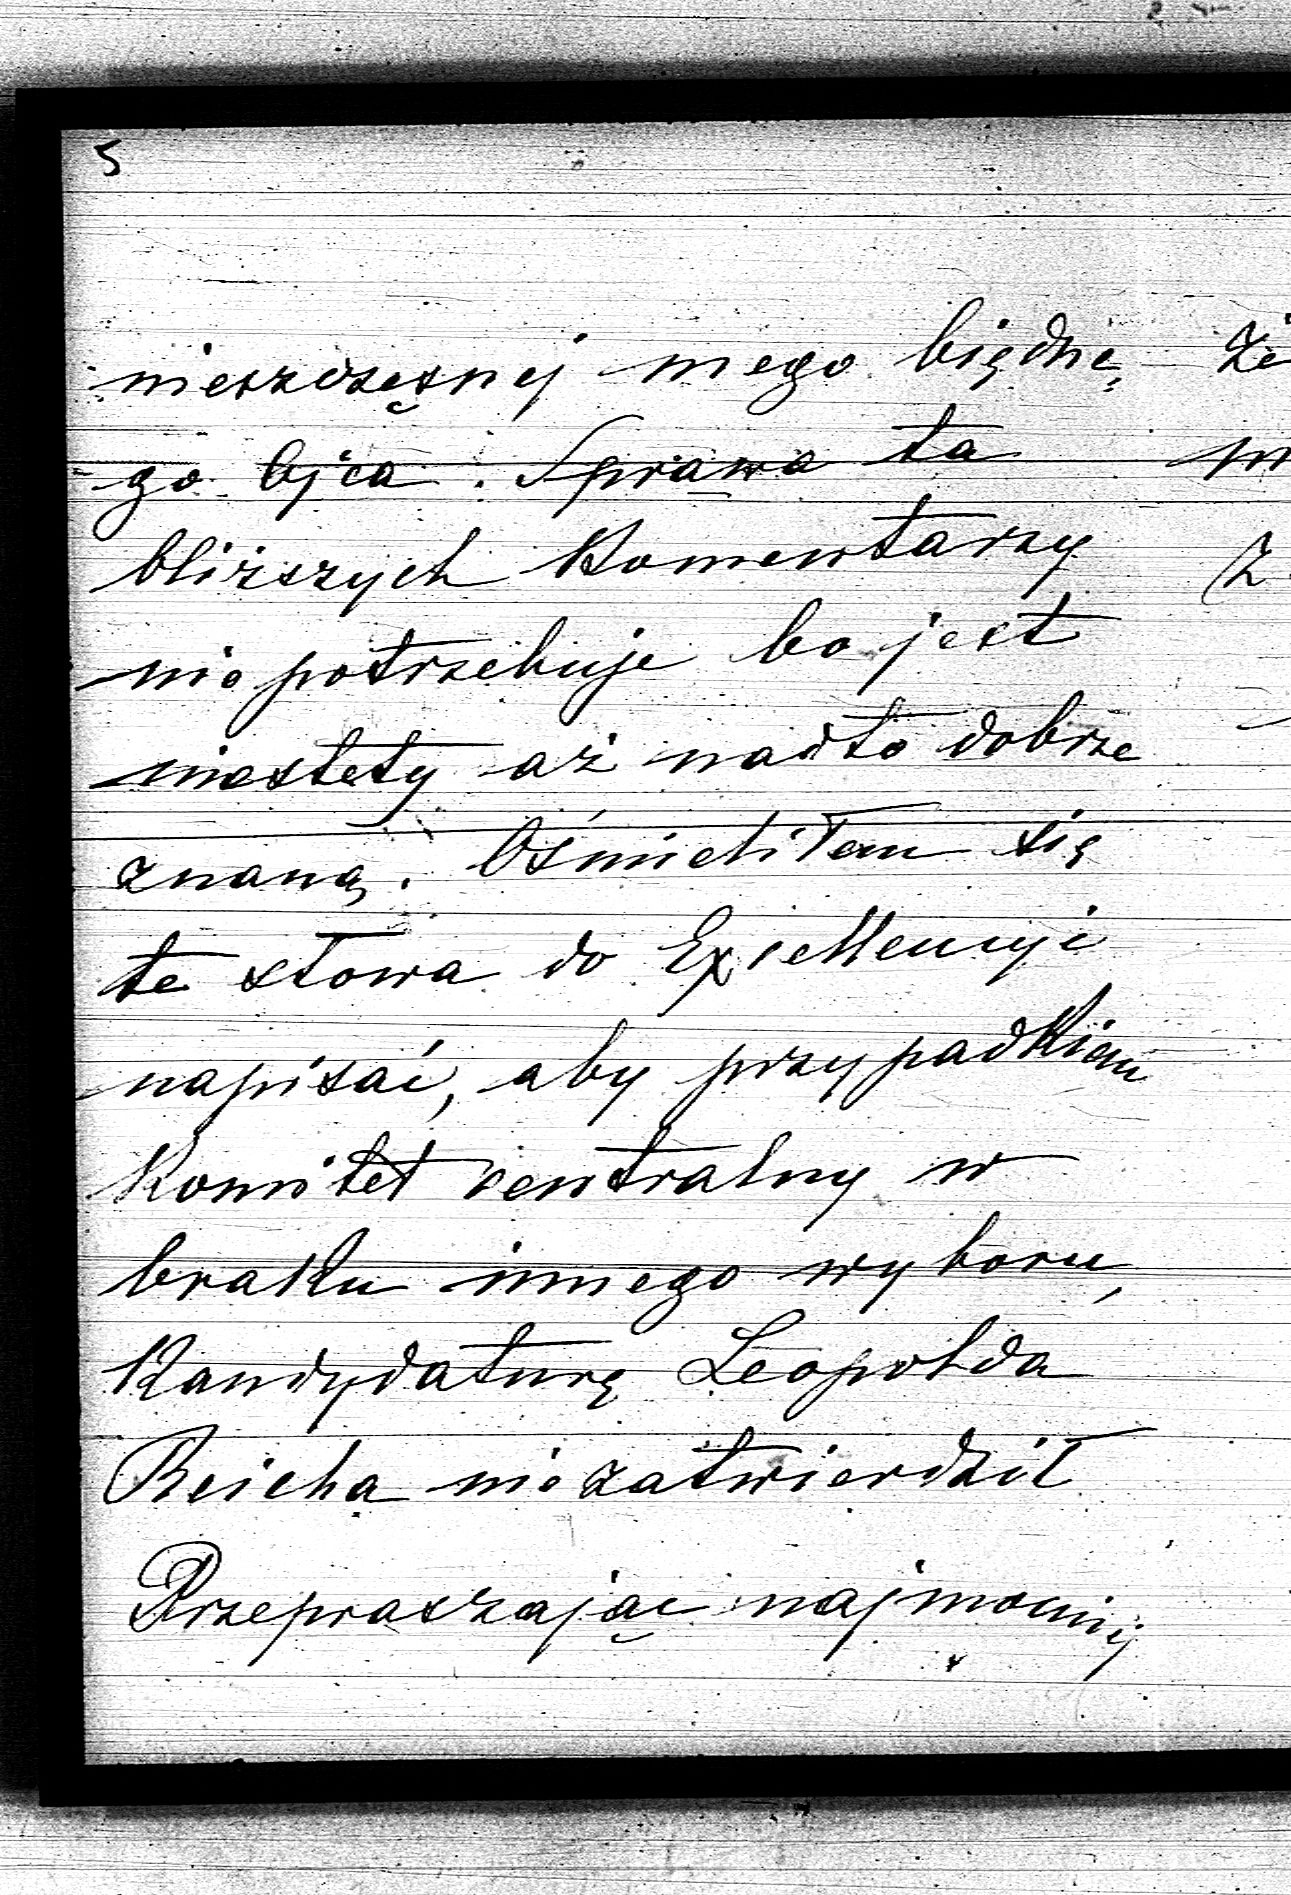 5
nieszczęsnej mego biędne
go Ojca. Sprawa ta
bliższych Komentarzy
nie potrzebuje bo jest
niestety aż nadto dobrze
znaną. Ośmieliłem się
te słowa do Excellencyi
napisać, aby przypadkiem
Komitet centralny w
braku innego wyboru,
Kandydaturę Leopolda
Reicha nie zatwierdził
Przepraszając najmocniej